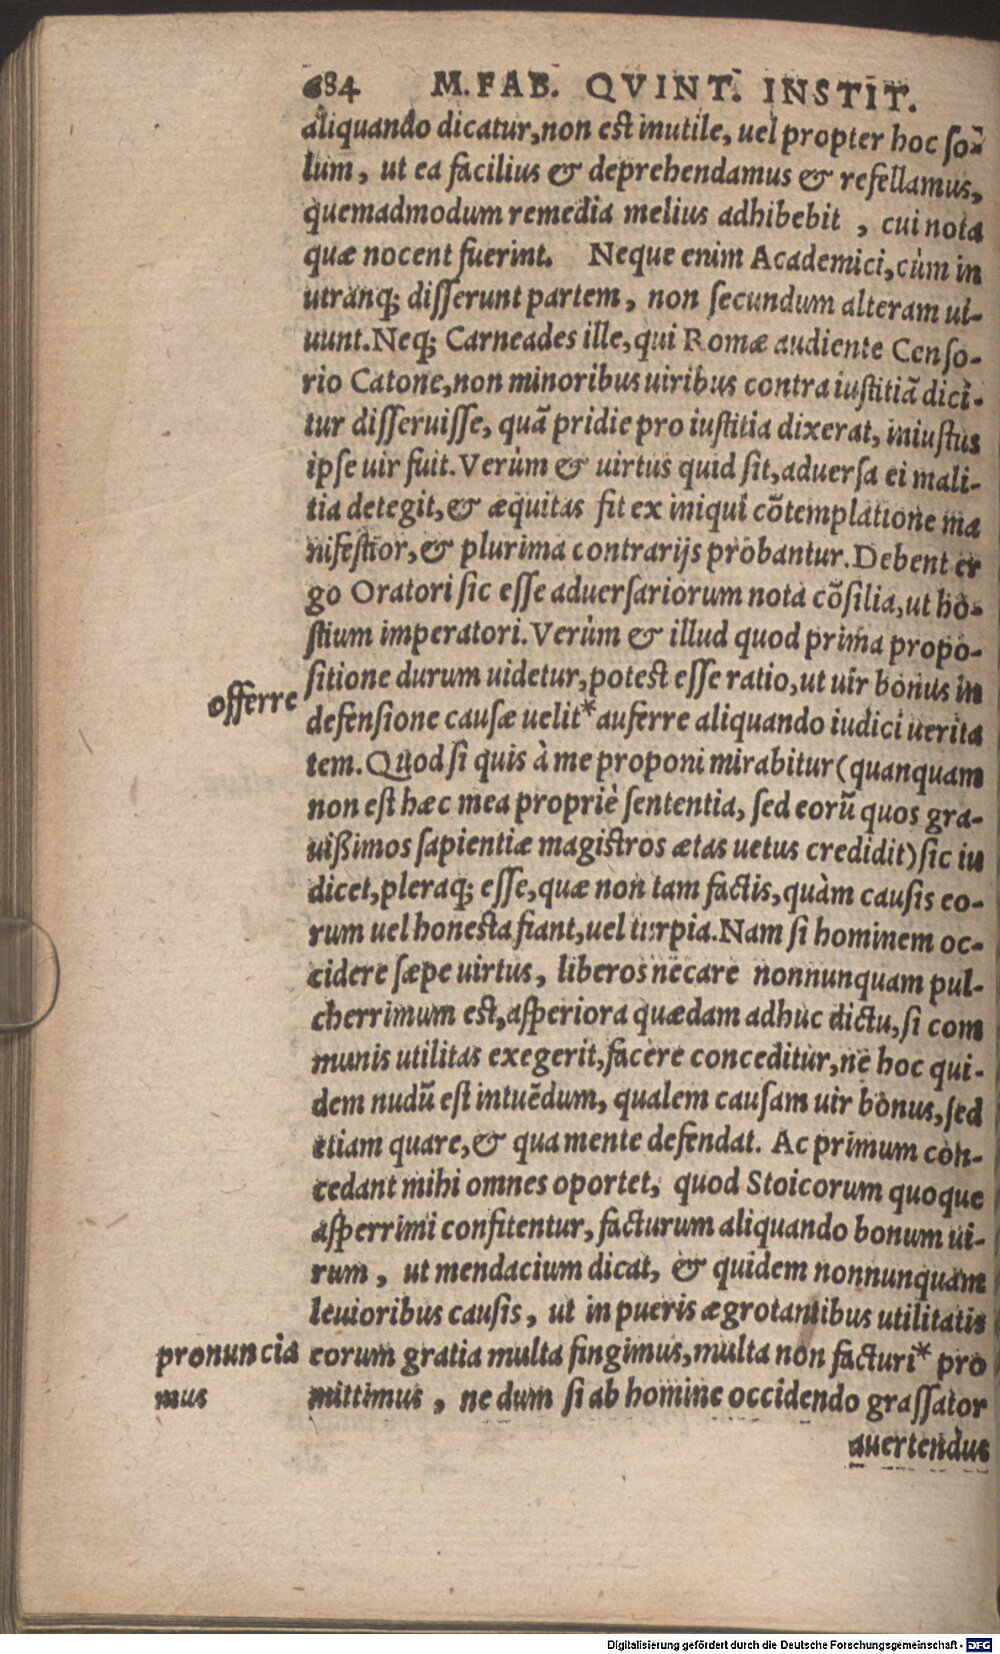 684 M. FAB. QVINT. INSTIT.
aliquando dicatur, non est inutile, uel propter hoc so-
lum, ut ea facilius & deprehendamus & refellamus,
quemadmodum remedia melius adhibebit, cui nota
quæ nocent fuerint. Neque enim Academici, cùm in
utranq; disserunt partem, non secundum alteram ui-
uunt. Neq; Carneades ille, qui Romæ audiente Censo-
rio Catone, non minoribus uiribus contra iustitiã dici-
tur disseruisse, quã pridie pro iustitia dixerat, iniustus
ipse uir fuit. Verùm & uirtus quid sit, aduersa ei mali-
tia detegit, & æquitas fit ex iniqui cõtemplatione ma
nifestior, & plurima contrarijs probantur. Debent er
go Oratori sic esse aduersariorum nota cõsilia, ut ho-
stium imperatori. Verùm & illud quod prima propo-
sitione durum uidetur, potest esse ratio, ut uir bonus in
offerre
defensione causæ uelit* auferre aliquando iudici uerita
tem. Quod si quis à me proponi mirabitur (quanquam
non est hæc mea propriè sententia, sed eorũ quos gra-
uißimos sapientiæ magistros ætas uetus credidit) sic iu
dicet, pleraq; esse, quæ non tam factis, quàm causis eo-
rum uel honesta fiant, uel turpia. Nam si hominem oc-
cidere sæpe uirtus, liberos necare nonnunquam pul-
cherrimum est, asperiora quædam adhuc dictu, si com
munis utilitas exegerit, facere conceditur, ne hoc qui-
dem nudũ est intuẽdum, qualem causam uir bonus, sed
etiam quare, & qua mente defendat. Ac primum con-
cedant mihi omnes oportet, quod Stoicorum quoque
asperrimi confitentur, facturum aliquando bonum ui-
rum, ut mendacium dicat, & quidem nonnunquam
leuioribus causis, ut in pueris ægrotantibus utilitatis
pronuncia
mus
eorum gratia multa fingimus, multa non facturi* pro
mittimus, ne dum si ab homine occidendo grassator
auertendus
Digitalisierung gefördert durch die Deutsche Forschungsgemeinschaft - DFG